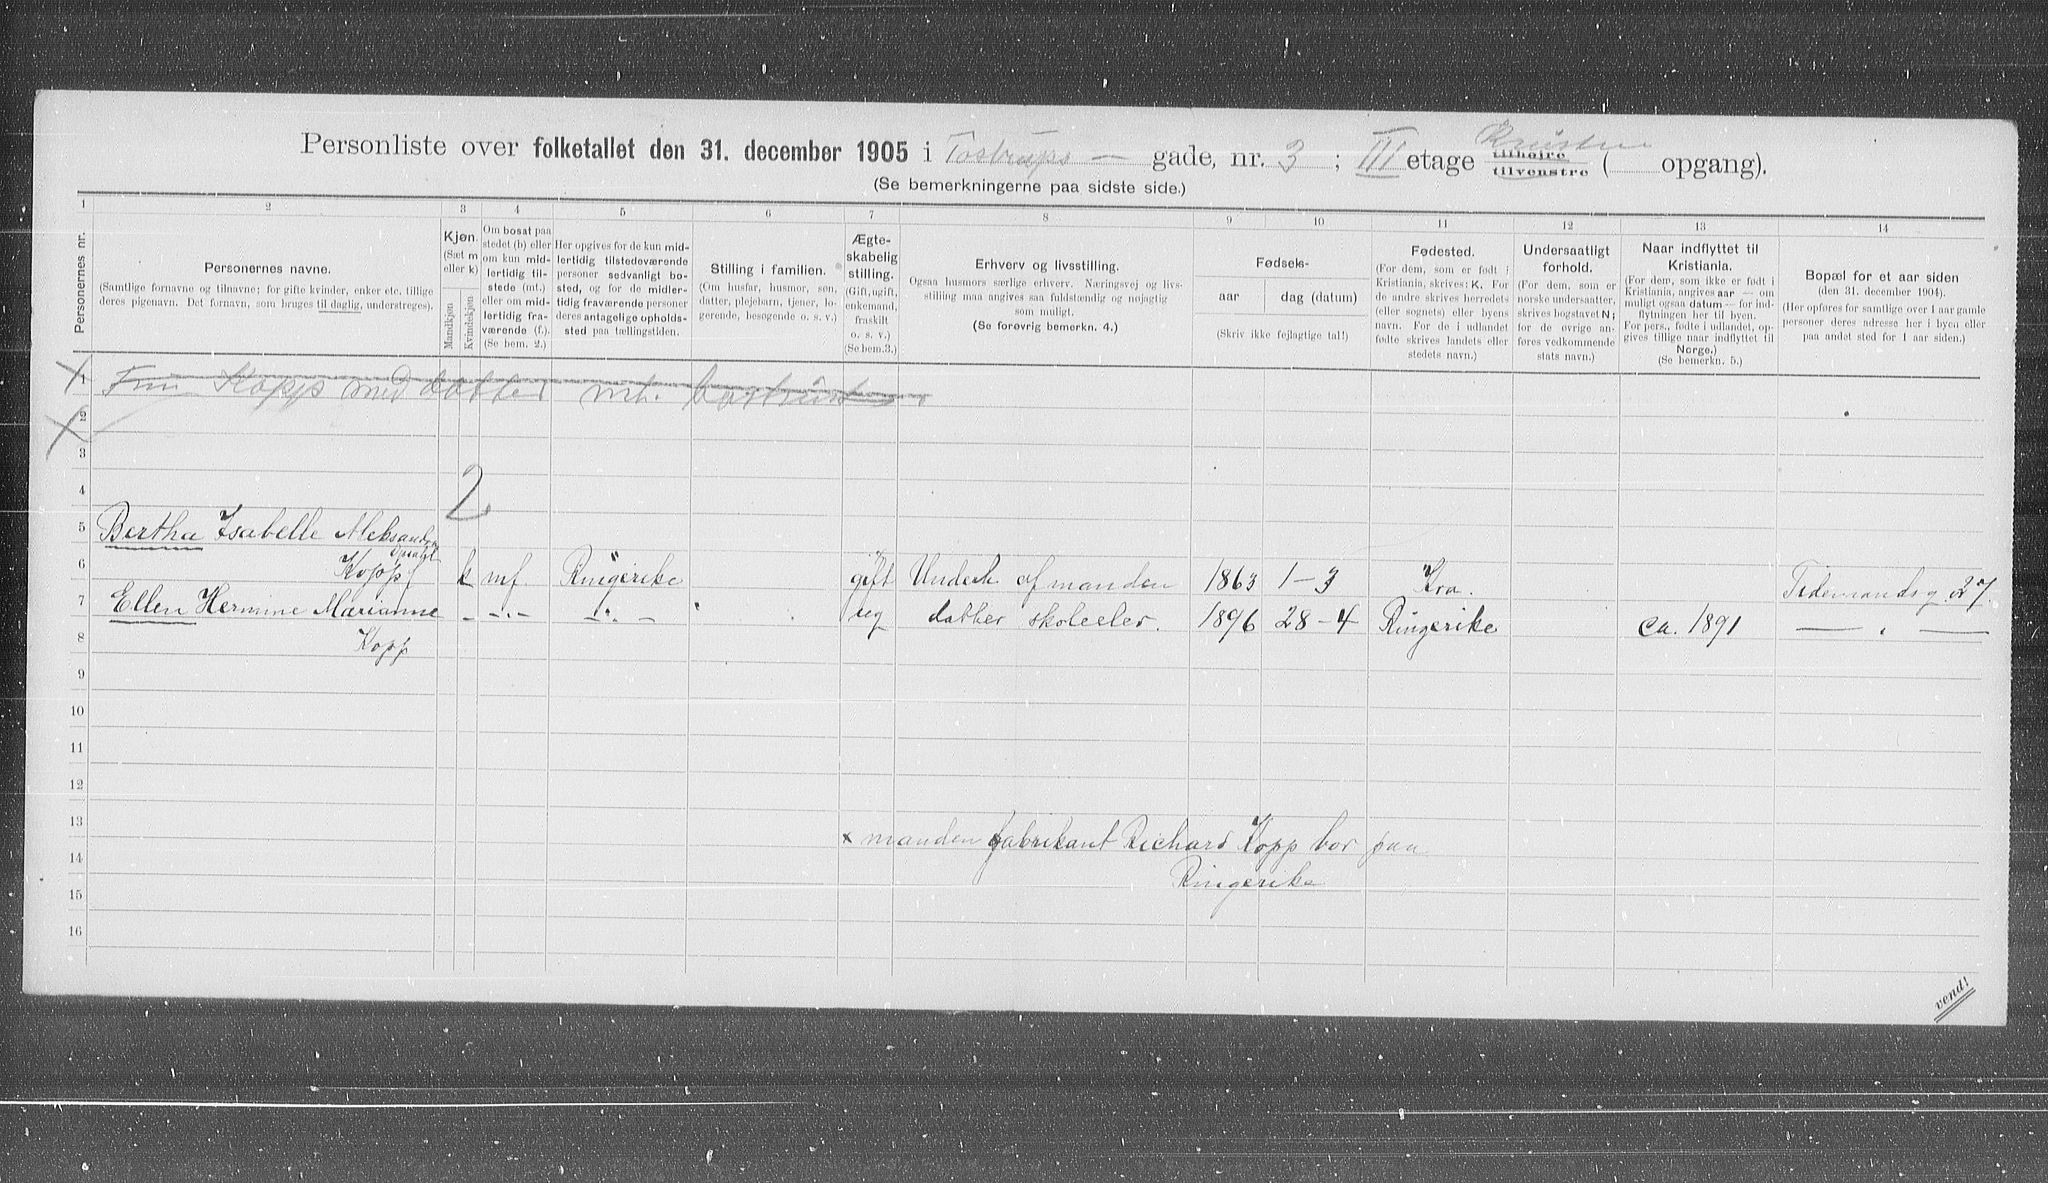 Personliste over folketallet den 31. december 1905 i Tostrups — gade, nr. 3 ; III etage tilhøire tilvenstre ( opgang).
(Se bemerkningerne paa sidste side.)
1 2 3 4 5 6 7 8 9 10 11 12 13 14
Personernes nr.
Personernes navne.
(Samtlige fornavne og tilnavne; for gifte kvinder, enker etc. tillige
deres pigenavn. Det fornavn, som bruges til daglig, understreges).
Kjøn.
(Sæt m
eller k)
Mandkjøn
Kvindekjøn
Om bosat paa
stedet (b) eller
om kun mid-
lertidig til-
stede (mt.)
eller om mid-
lertidig fra-
værende (f.).
(Se bem. 2.)
Her opgives for de kun mid-
lertidig tilstedeværende
personer sedvanligt bo-
sted, og for de midler-
tidig fraværende personer
deres antagelige opholds-
sted paa tællingstiden.
Stilling i familien.
(Om husfar, husmor, søn,
datter, plejebarn, tjener, lo-
gerende, besøgende o. s. v.)
Ægte-
skabelig
stilling.
(Gift, ugift,
enkemand,
fraskilt
o. s. v.)
(Se bem.3.)
Erhverv og livsstilling.
Ogsaa husmors særlige erhverv. Næringsvej og livs-
stilling maa angives saa fuldstændig og nøjagtig
som muligt.
(Se forøvrig bemerkn. 4.)
Fødsels-
aar
dag (datum)
(Skriv ikke fejlagtige tal!)
Fødested.
(For dem, som er født i
Kristiania, skrives: K. For
de andre skrives herredets
(eller sognets) eller byens
navn. For de i udlandet
fødte skrives landets eller
stedets navn.)
Undersaatligt
forhold.
(For dem, som er
norske undersaatter,
skrives bogstavet N;
for de øvrige an-
føres vedkommende
stats navn.)
Naar indflyttet til
Kristiania.
(For dem, som ikke er født i
Kristiania, angives aar — om
muligt ogsaa datum — for ind-
flytningen her til byen.
For pers., fødte i udlandet, op-
gives tillige naar indflyttet til
Norge.)
(Se bemerkn. 5.)
Bopæl for et aar siden
(den 31. december 1904).
(Her opføres for samtlige over 1 aar gamle
personer deres adresse her i byen eller
paa andet sted for 1 aar siden.)
1 Fru Kopp med datter mt.
2
3
4 2
5 Bertha Isabelle Aleksandra
6 Kopp k mf Ringerike gift Underh af manden 1863 1–3 Kra. Tidemandsg. 27.
7 Ellen Hermine Marianne —"— —"— ug datter skoleelev. 1896 28–4 Ringerike ca. 1891 — " —
8 Kopp
9
10
11
12
13 x manden fabrikant Richard Kopp bor paa
14 Ringerike
15
16
vend!